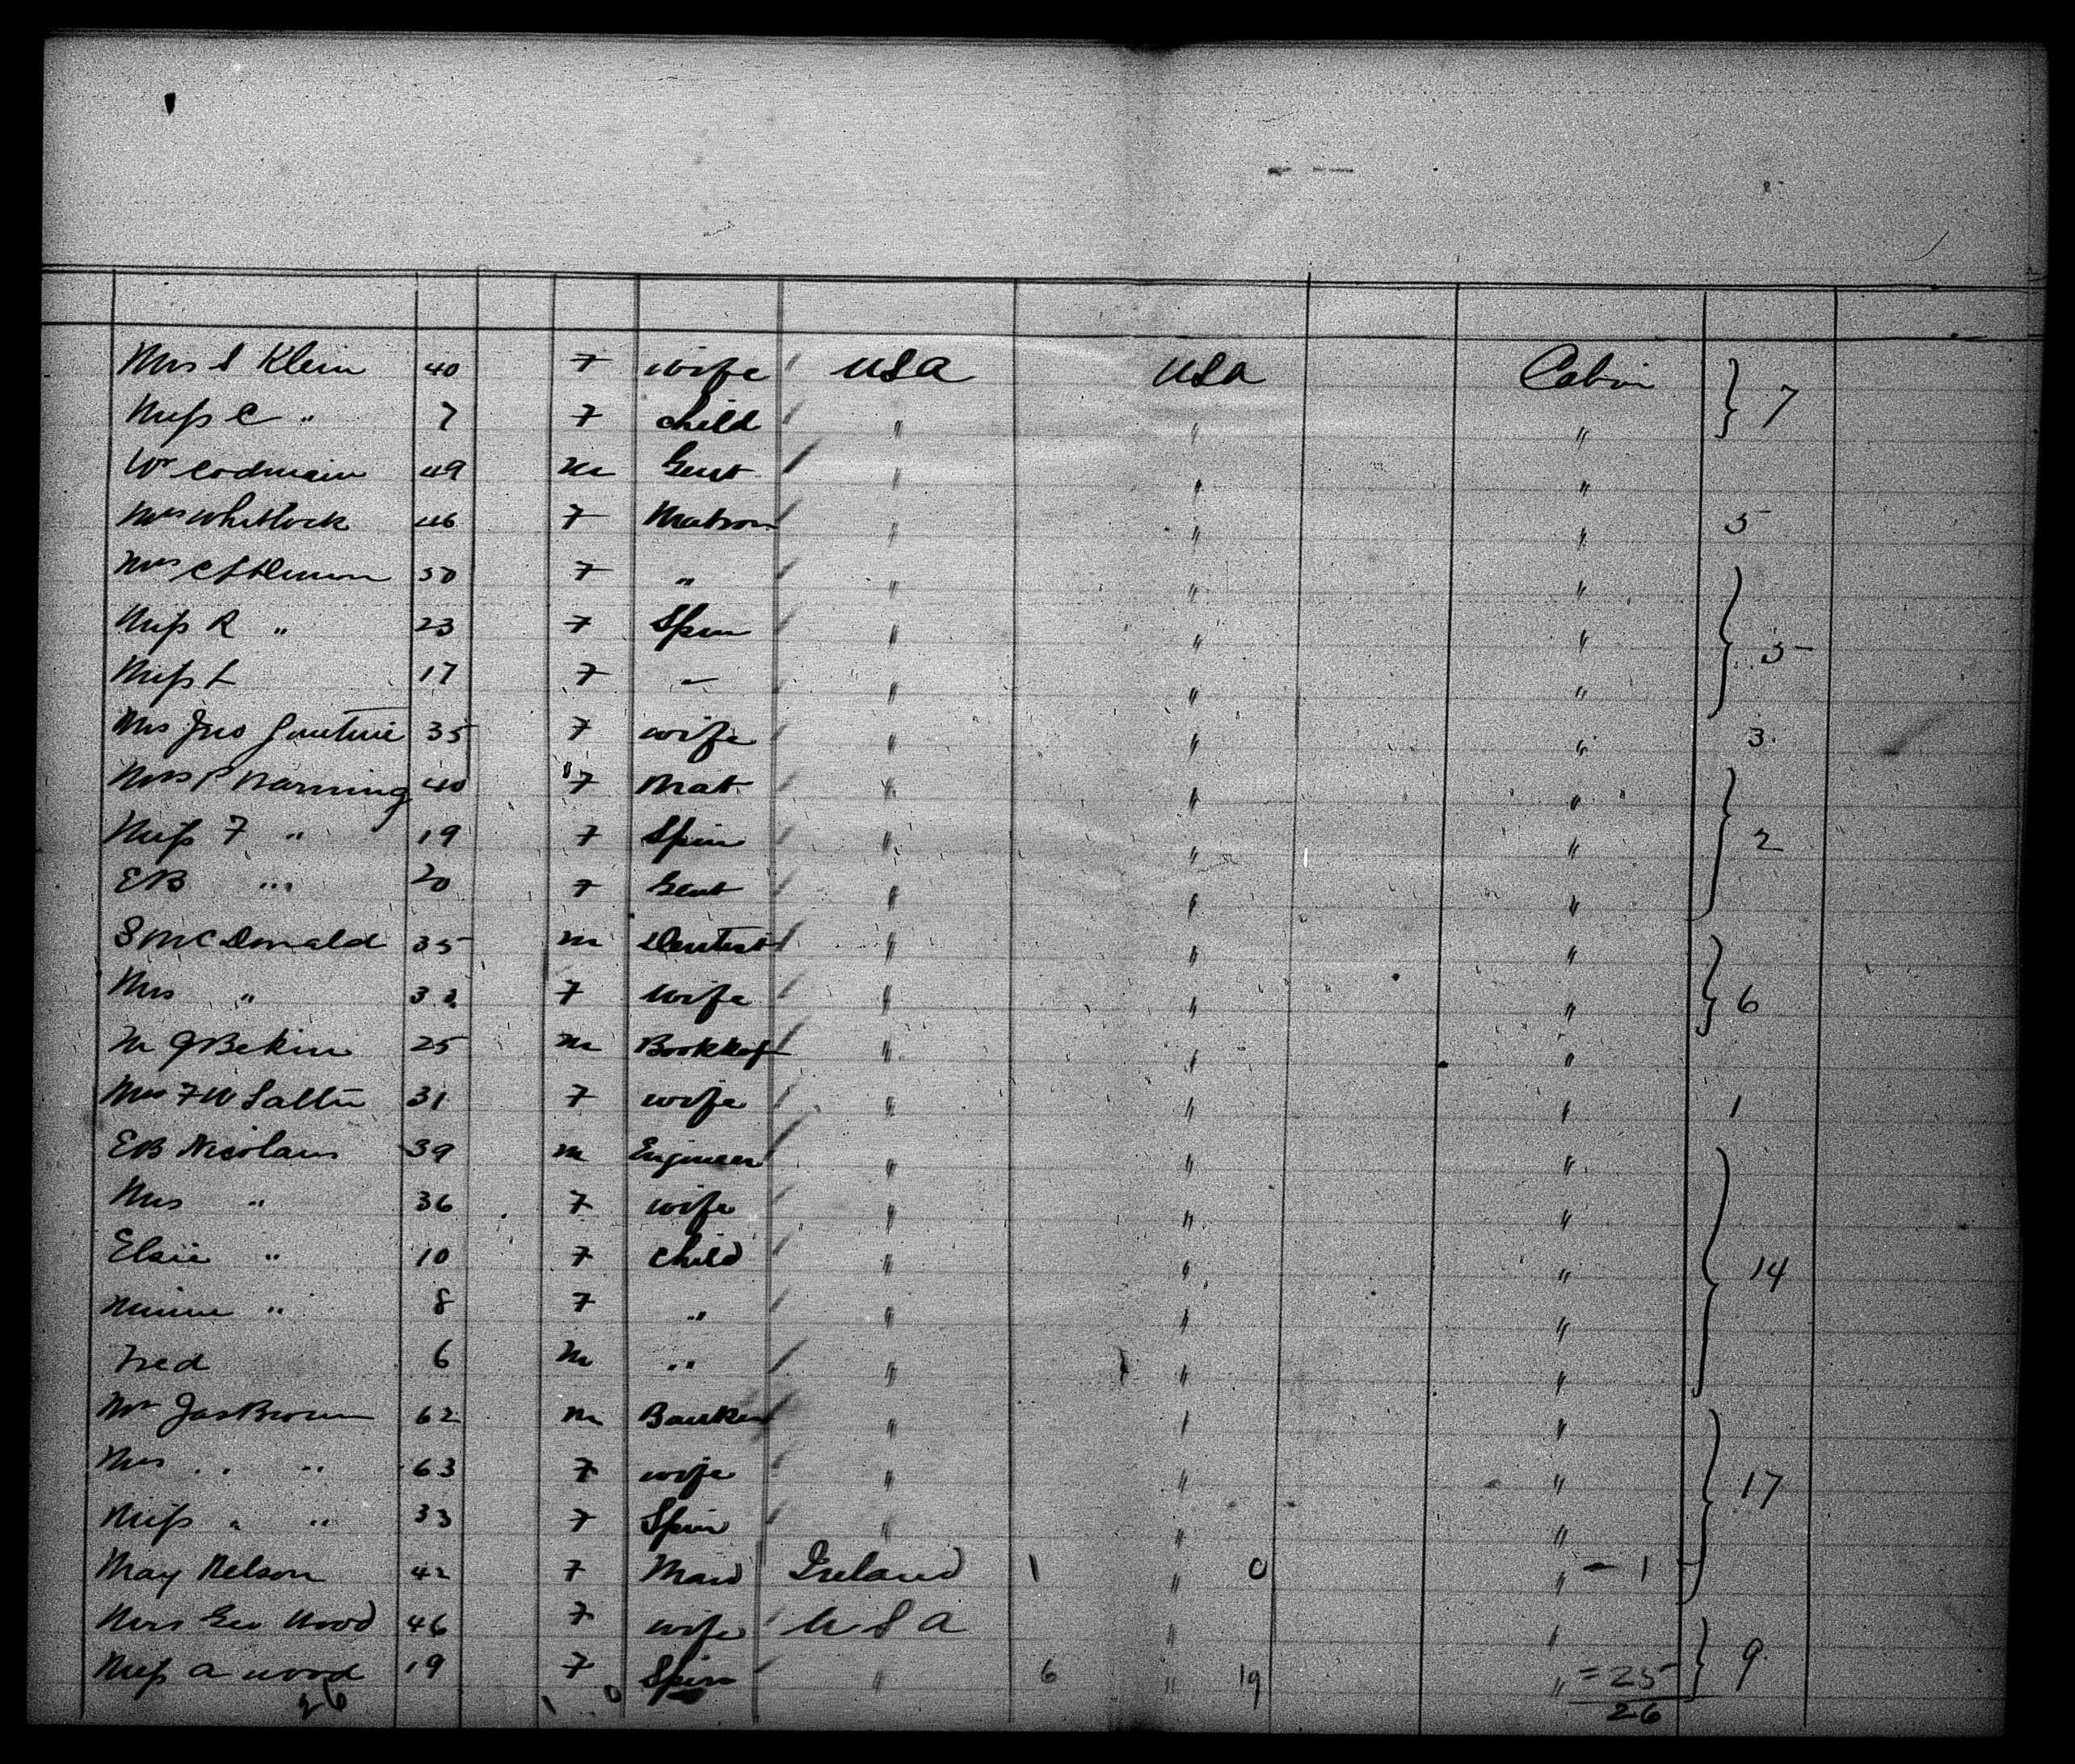 Mrs S Klein 40 F wife USA USA Cabin } 7
Miss C " 7 F child " " "
Wm Codman 49 m Gent " " "
Mrs Whitlock 46 F Matron " " " 5
Mrs C 50 F " " " "
Miss R " 23 F Spin " " " } 5
Miss L 17 F " " " "
Mrs Jno Guthrie 35 F wife " " " 3
Mrs P Warming 40 F Mat " " "
Miss F " 19 F Spin " " " } 2
EB " 20 F Gent " " "
S McDonald 35 m Dentist " " "
Mrs " 33 F wife " " " } 6
M J Bekin 25 m Bookkep " " "
Mrs FW Salter 31 F wife " " " 1
EB Nicolaus 39 m Engineer " " "
Mrs " 36 F wife " " "
Elsie " 10 F child " " " } 14
Minnie " 8 F " " " "
Fred 6 m " " " "
Mr Jas Brown 62 m Banker " " "
Mrs " " 63 F wife " " " } 17
Miss " " 33 F Spin " " "
May Nelson 42 F Maid Ireland 1 " 0 " - 1
Mrs Geo Wood 46 F wife USA " "
Miss A Wood 19 F Spin " 6 " 19 " = 25 } 9
26 26